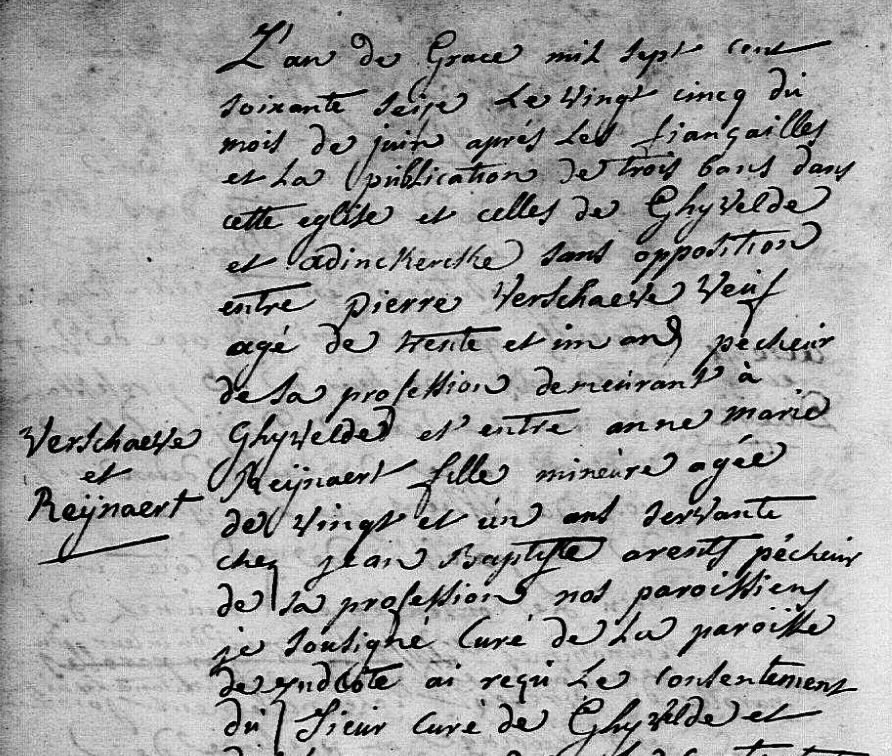 L'an de Grace mil sept cent
soixante seize le vingt cinq du
mois de juin aprés les fiançailles
et la publication de trois bans dans
cette eglise et celles de Ghyvelde
et adinckercke sans opposition
entre pierre Verschaeve Veuf
agé de trente et un ans pécheur
de sa profession demeurant à
Ghyvelde et entre anne marie
Reijnaert fille mineure agée
de vingt et un ans servante
chez jean Baptyste arents pécheur
de sa profession nos paroissiens
je sousigné Curé de la paroisse
de ai reçu le consentement
du Sieur Curé de Ghyvelde et
Verschaeve
et
Reijnaert